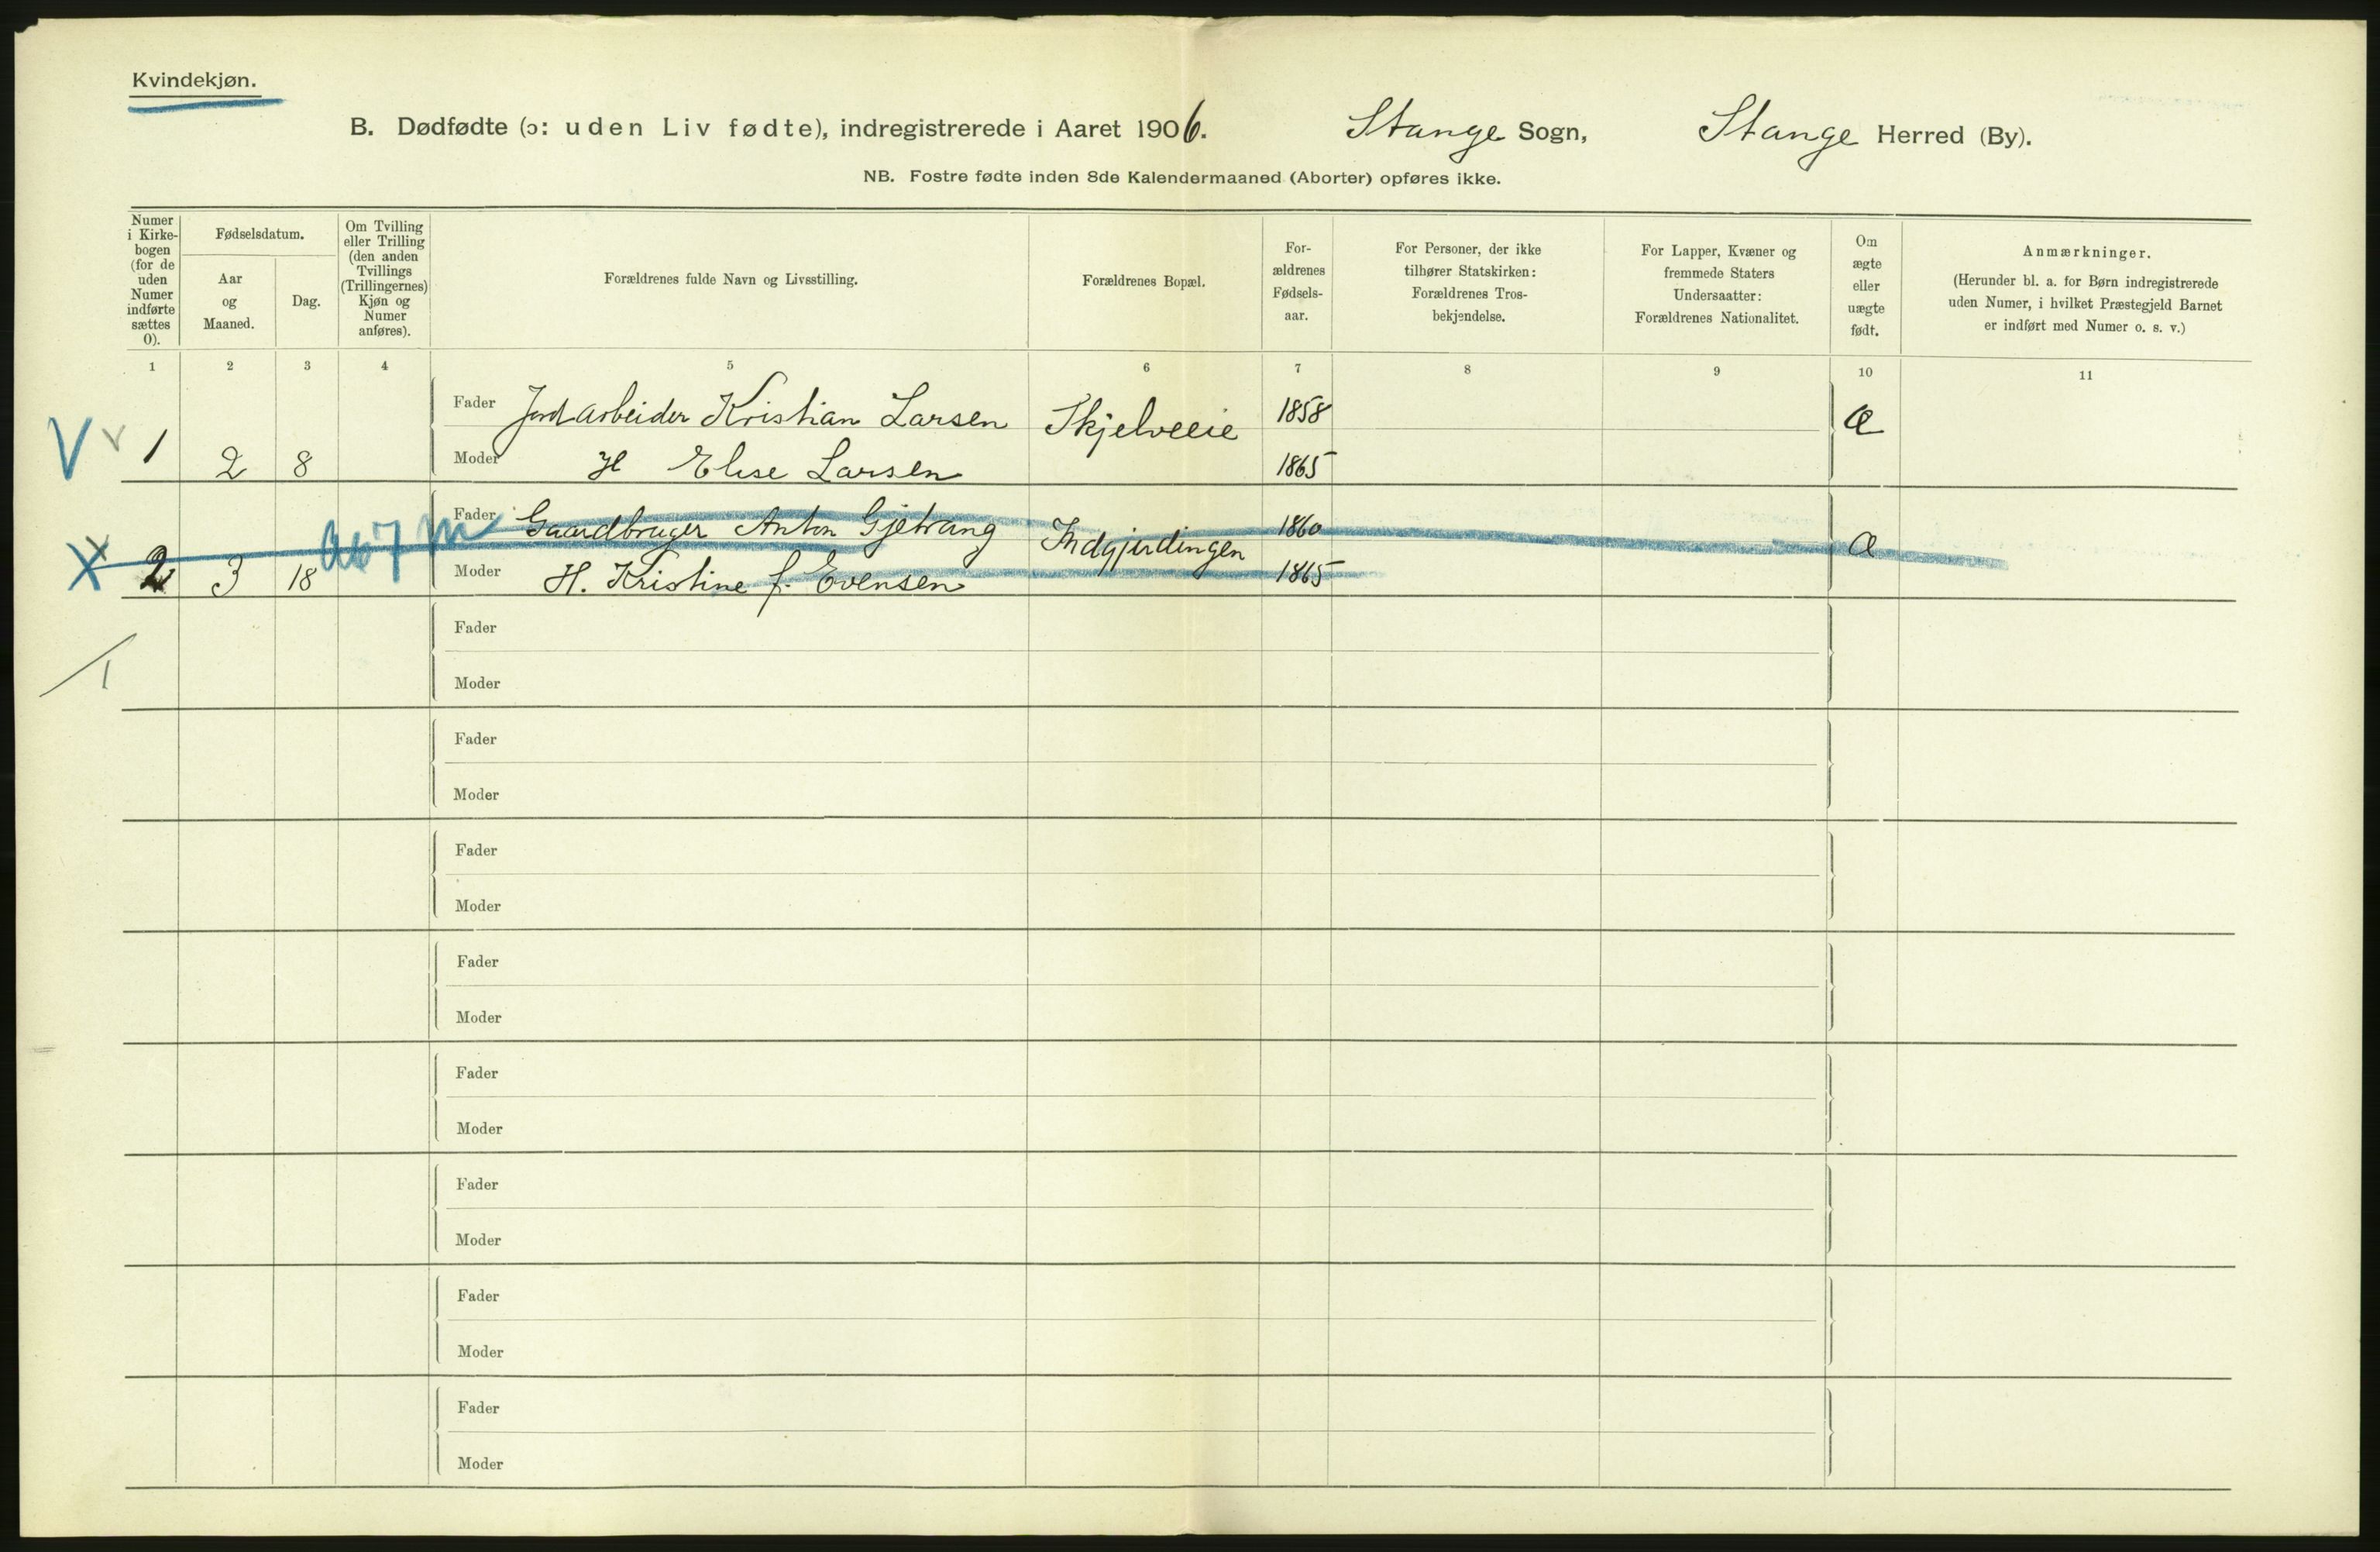 Kvindekjøn.
B. Dødfødte (ɔ: uden Liv fødte), indregistrerede i Aaret 1906. Stange Sogn, Stange Herred (By).
NB. Fostre fødte inden 8de Kalendermaaned (Aborter) opføres ikke.
Numer i Kirke-bogen (for de uden Numer indførte sættes 0).
Fødselsdatum.
Aar og Maaned.
Dag.
Om Tvilling eller Trilling (den anden Tvillings (Trillingernes) Kjøn og Numer anføres).
Forældrenes fulde Navn og Livsstilling.
Forældrenes Bopæl.
For-ældrenes Fødsels-aar.
For Personer, der ikke tilhører Statskirken: Forældrenes Tros-bekjendelse.
For Lapper, Kvæner og fremmede Staters Undersaatter: Forældrenes Nationalitet.
Om ægte eller uægte født.
Anmærkninger.
(Herunder bl. a. for Børn indregistrerede uden Numer, i hvilket Præstegjeld Barnet er indført med Numer o. s. v.)
1 2 3 4 5 6 7 8 9 10 11
Fader Jordarbeider Kristian Larsen Skjelveeie 1858 Æ
V v 1 2 8 Moder H Elise Larsen 1865
Fader Gaardbruger Anton Gjetvang Indgjerdingen 1860 Æ
X 2 3 18 Moder H. Kristine f. Evensen 1865
Fader
1
Moder
Fader
Moder
Fader
Moder
Fader
Moder
Fader
Moder
Fader
Moder
Fader
Moder
Fader
Moder